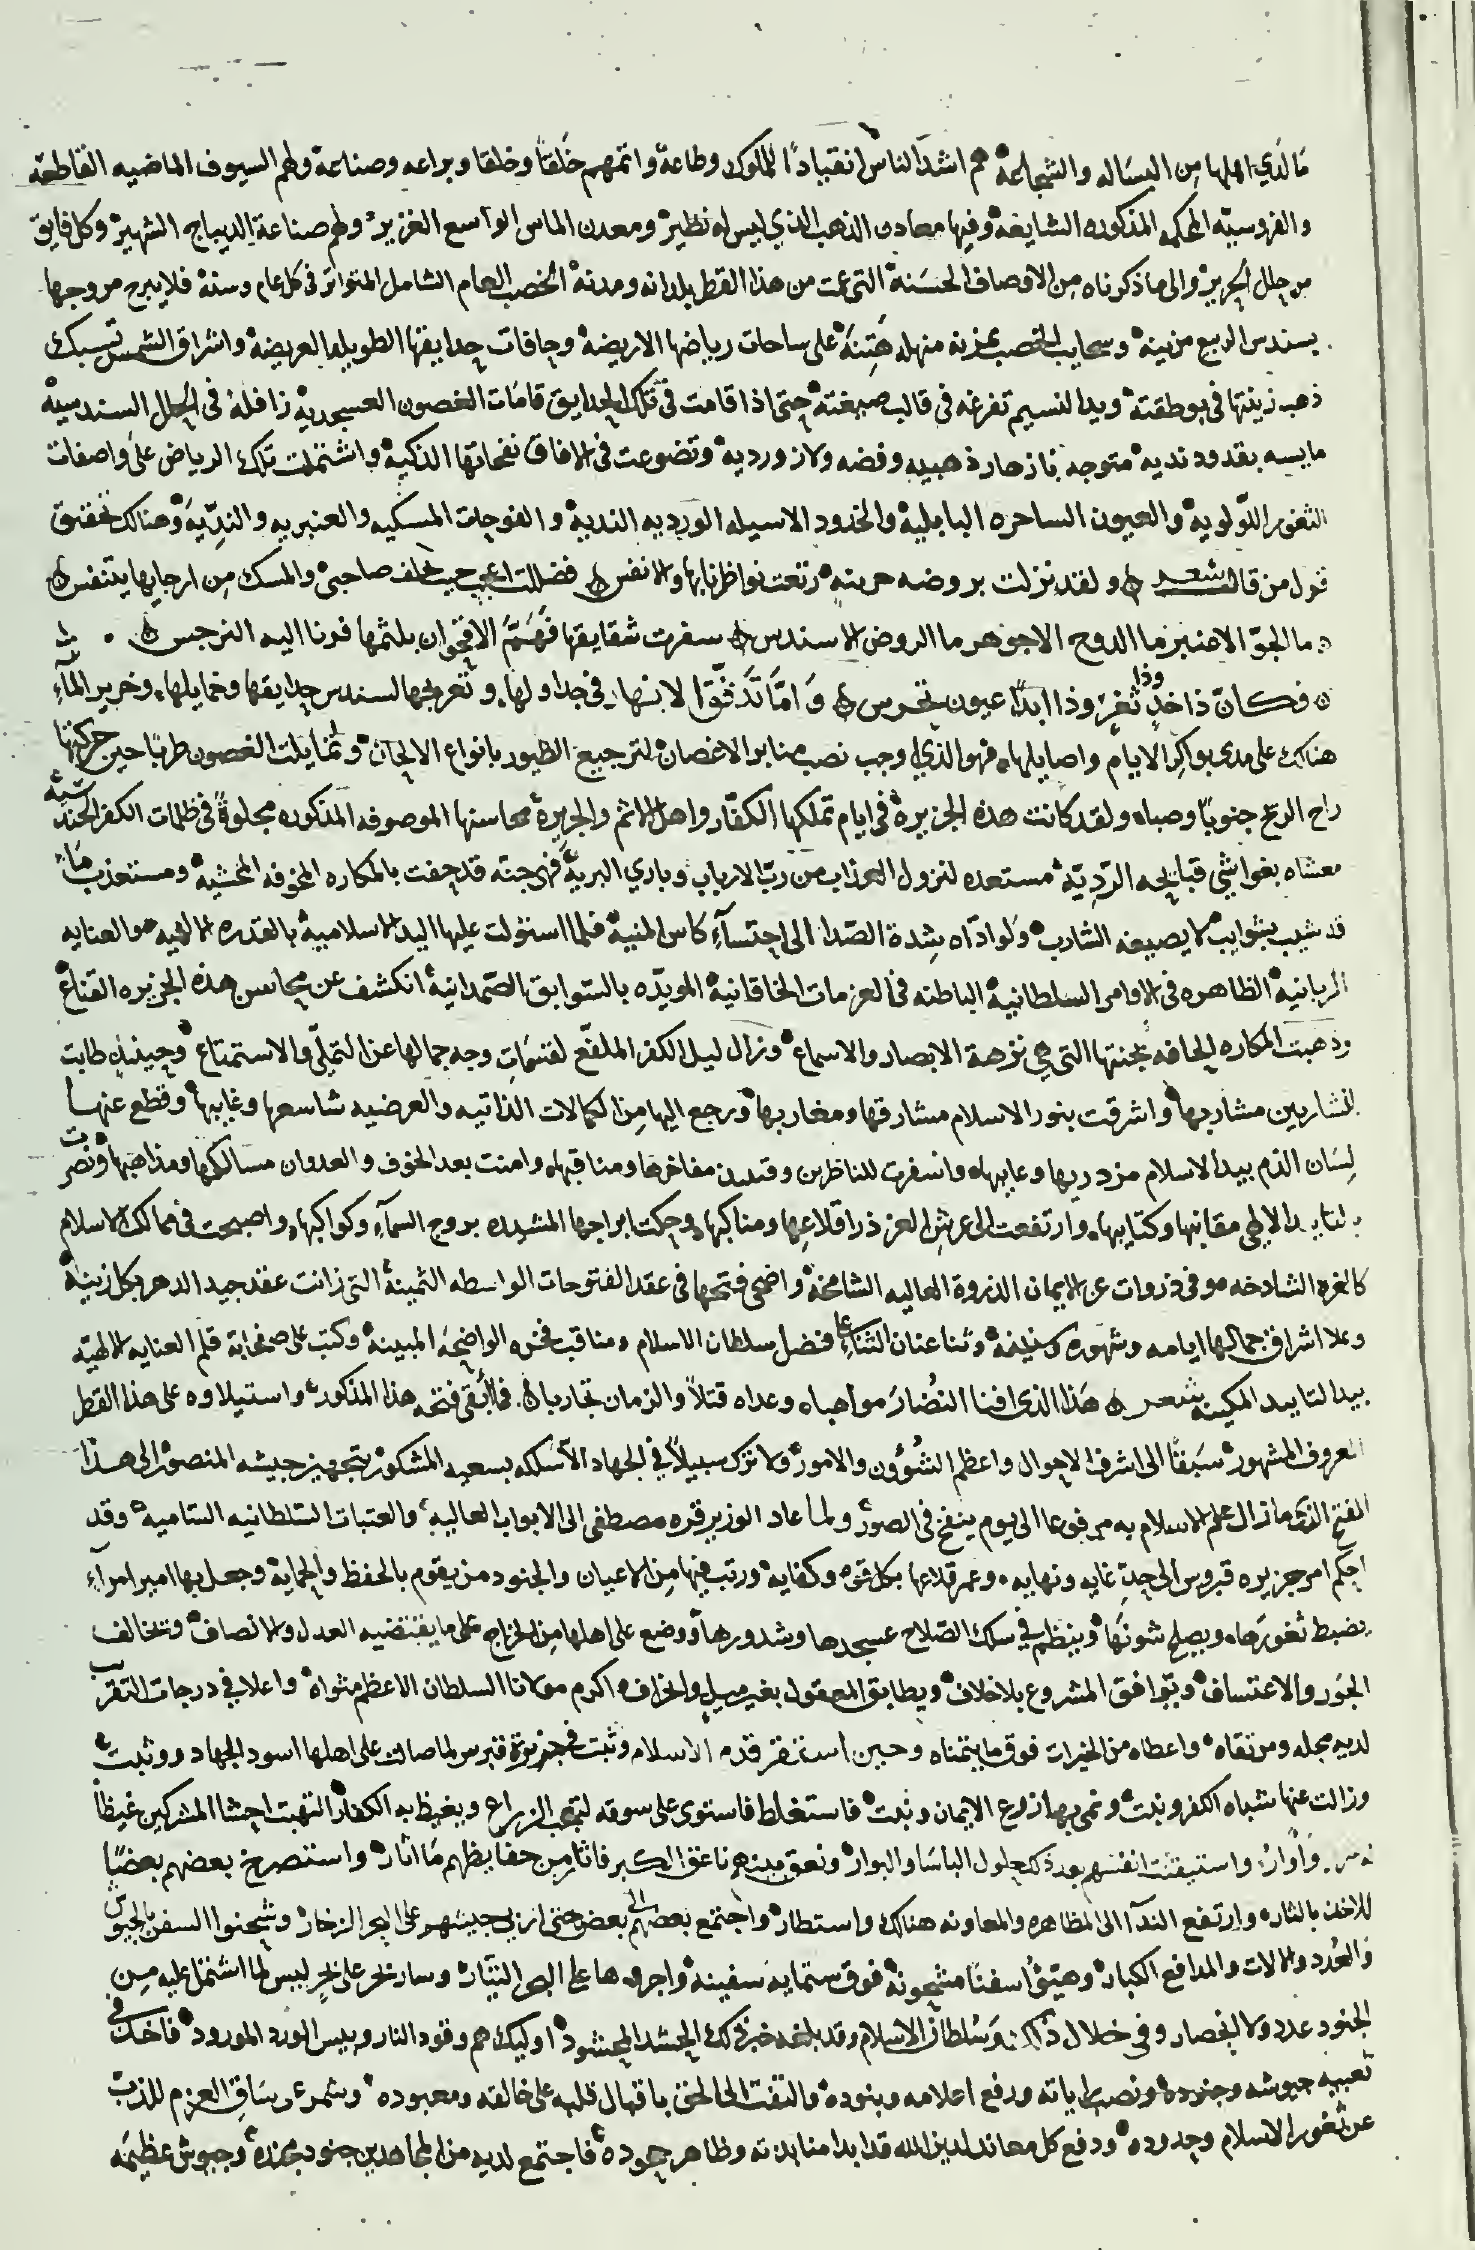 ما لدي اهلها من البساله والشجاعة هم اشد الناس انقيادًا للملوك وطاعة واتمهم خَلقًا وخلقا وبراعه وصناعة ولهم السيوف الماضيه القاطعة
والفروسيّه المحكمه المذكوره الشايعة وفيها معادن الذهب الذي ليس له نظير ومعدن الماس الواسع الغزير ولهم صناعة الديباج الشهير وكل فايق
من حلل الحرير والى ما ذكرناه من الاوصاف الحسَنة التى عمت من هذا القطر بلدانه ومدنه الخصب العام الشامل المتواتر فى كل عام وسنة فلا يبرح مروجها
بسندس الربيع مزينة وسحايب الخصب بمزنه منهله هَتِنَة على ساحات رياضها الاريضة وحافات حدايقها الطويله العريضة واشراق الشمس تسبك
ذهب زينتها فى بوطقته ويد النسيم تفرغه في قالب صبغته حتى اذا قامت فى تلك الحدايق قامَات الغصون العسجدية رافلة فى الحلل السندسية
مايسه بقدود نديه متوجه بازهار ذهبيه وفضه ولازوردية وتضوعت فى الافاق نفحاتها الذكية واشتملت تلك الرياض على واصفات
الثغور اللّولوية والعيون الساحره البابلية والخدود الاسيله الورديه الندية والفوحات المسكيه والعنبريه والندِّيَة وهنالك تحقق
قول من قال شعر ولقد نزلت بروضه حزينه رتعت نواظرنا بها والانفس فضللت اعجب حيث خلف صاحبى والمسك من ارجايها يتنفس
ما الجوّ الا عنبر ما الدوح الا جوهر ما الروض الا سندس سفرت شقايقها فَهَمَّ الاقحوان بلثمها فرنا اليه النرجس
فكانّ ذا خدٍ وذا ثغر وذا ابدًا عيون تحرس وَامَّا تَدَفُّق الانهار فى جداولها وتعريجها لسندس حدايقها وخمايلها وخرير المآء
هناك على مدى بواكر الايام واصايلها فهو الذي اوجب نصب منابر الاغصان لترجيع الطيور بانواع الالحان وتمايلت الغصون طربًا حين حركتها
راح الريح جنوبًا وصباه ولقد كانت هذه الجزيرة فى ايام تملكها الكفّار واهل الاثم والجريرة محاسنها الموصوفه المذكوره مجلوةً فى ظلمات الكفر
مغشاه بغواشي قبايحه الردِيّة مستعده لنزول العذاب من ربّ الارباب وباري البرية فهى جنة قد حفت بالمكاره المخوفه المخشية ومستعذب مَاء
قد شيب بشوايب لا يصيغه الشارب ولو ادّاه شِدة الصّدا الى احتسآءِ كاس المنية فلما استولت عليها اليد الاسلامية بالقدره الالهيه والعنايه
الربانية الظاهره فى الاوامر السلطانية الباطنه فى العزمات الخاقانية المويدّه بالسّوابق الصّمدانية انكشف عن محاسن هذه الجزيره القناع
وذهبت المكاره الحافه بجنتها التى هي نزهة الابصار والاسماع وزال ليل الكفر الملفّع لقسَمَاتِ وجه جمالها عن التملّى والاستمتاع وحينيذٍ طابت
للشاربين مشاربها واشرقت بنور الاسلام مشارقها ومغاربها ورجع اليها من الكمالات الذاتيه والعرضيه شاسعها وغايبها وقطع عنها
لِسَان الذم بيد الاسلام مزدريها وعايبها واسفرت للناظرين مفاخرها ومناقبها وامنت بعد الخوف والعدوان مسالكها ومذاهبها ونصرت
بالتاييد الالهى مقانبها وكتايبها وارتفعت الى عرش العز ذرا قلاعِها ومناكبها وحكت ابراجها المشيده بروج السمآءِ وكواكبها واصبحت فى ممالك الاسلام
كالغره الشادخه وفى ذروات عز الايمان الذروة العاليه الشامخة واضحى فتحها فى عقد الفتوحات الواسطه الثمينة التى زانت عقد جيد الدهر بكل زينة
وعلا اشراق جمالها ايامه وشهوره وسنينه وثنا عنان الثناءِ على فضل سلطان الاسلام ومناقب فخره الواضحة المبينة وكتب على صفحاته قلم العنايه الالهيّه
بيد التاييد المكينه شعر هذا الذى افنا النُضَارَ مواهباه وعداه قتلاً والزمان تجاربا فما ابقى فتحه هذا المذكور واستيلاوه على هذا القطر
المعروف المشهور سَبَقًا الى اشرف الاحوال واعظم الشُؤُون والامور ولا ترك سبيلاً في الجهاد الا سَلكه بسعيه المشكور بتجهيز جيشه المنصور الى هذا
الفتح الذى ما زال علم الاسلام به مرفوعا الى يوم ينفخ فى الصور ولما عاد الوزير قره مصطفى الى الابواب العاليه والعتبات السّلطانيه السّامية وقد
احكم امر جزيره قبروس الى حدّ غايه ونهايه وعمر قلاعها بكل قوه وكفايه ورتب فيها من الاعيان والجنود من يقوم بالحفظ والحماية وجعل بها امير امراءِ
يضبط ثغورَها ويصلح شونَها وينظم في سلك الصّلاح عسجدها وشدورها ووضع على اهلها من الخراج على ما يقتضيه العدل والانصاف وتخالف
الجَور والاعتساف ويوافق المشروع بلا خلاف ويطابق المعقول بغير ميل وانحراف اكرم مولانا السلطان الاعظم مثواه واعلا في درجات التقرب
لديه محله ومرتقاه واعطاه من الخيرات فوق ما يتمناه وحين استقر قدم الاسلام وثبت في جزيرة قبرس لما صالت على اهلها اسود الجهاد ووثبت
وزالت عنها شباه الكفر ونبت ونمى بها زرع الايمان ونبت فاستغلظ فاستوى على سوقه ليعجب الزراع ويغيظ به الكفار التهبت احشا المشركين غيظًا
وأُوارًا واستيقنت انفسهم بعد ذلك حلول الباسَا والبوار ونعق بينهم ناعق الكبر فاثار من حفايظهم مَا اثار واستصرخ بعضهم بعضًا
للاخذ بالثاره وارتفع الندآ الى المظاهره والمعاونه هنالك واستطار واجتمع بعضهم الى بعض حتى اربى جيشهم على البحر الزخار وشحنوا السفن بالجيوش
والعُدد والالات والمدافع الكبار وهيّؤُا سفنًا مشحونة فوق ستمايه سفينه واجروها على البحر التيّار وسار بحر على بحر ليس لما اشتمل عليه من
الجنود عدد ولا انحصار وفى خلال ذلك وسُلطان الاسلام وقد بلغه خبر ذلك الحشد المحشود اوليك هم وقود النار وبيس الورد المورود فاخذ في
تعبيه جيوشه وجنوده ونصب راياته ورفع اعلامه وبنوده والتفت الى الحق باقبال قلبه على خالقه ومعبوده وشمر عن سَاق العزم للذب
عن ثغور الاسلام وحدوده ودفع كل معاند لدين الله قد ابدا منابذته وظاهر جحوده فاجتمع لديه من المجاهدين جنود مجنده وجيوش عظيمَه